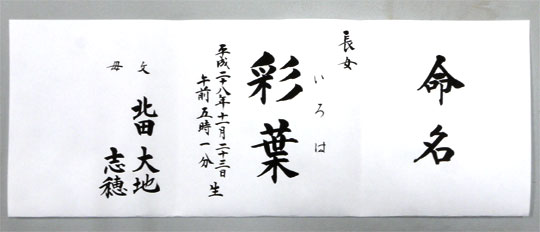 命名
長女
いろは
彩葉
平成二十八年十一月二十三日
午前五時一分 生
父 北田 大地
母 志穂